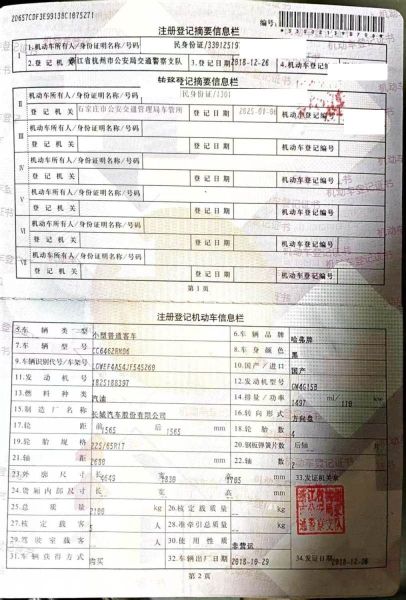 注册登记摘要信息栏
编号:
Ⅰ 1.机动车所有人/身份证明名称/号码 民身份证/33012519
2.登记机关 江省杭州市公安局交通警察支队 3.登记日期 2018-12-26 4.机动车登记
转移登记摘要信息栏
Ⅱ 机动车所有人/身份证明名称/号码 民身份证/
登记机关 石家庄市公安交通管理局车管所 登记日期 2025-01-06 机动车登记
Ⅲ 机动车所有人/身份证明名称/号码
登记机关 登记日期 机动车登记编号
Ⅳ 机动车所有人/身份证明名称/号码
登记机关 登记日期 机动车登记编号
Ⅴ 机动车所有人/身份证明名称/号码
登记机关 登记日期 机动车登记编号
Ⅵ 机动车所有人/身份证明名称/号码
登记机关 登记日期 机动车登记编号
Ⅶ 机动车所有人/身份证明名称/号码
登记机关 登记日期 机动车登记编号
第1页
注册登记机动车信息栏
5.车辆类型 小型普通客车 6.车辆品牌 哈弗牌
7.车辆型号 8.车身颜色 黑
9.车辆识别代号/车架号 10.国产/进口 国产
11.发动机号 12.发动机型号 GW4G15B
13.燃料种类 汽油 14.排量/功率 1497 ml/ 110 kw
15.制造厂名称 长城汽车股份有限公司 16.转向形式 方向盘
17.轮距 前 1565 后 1565 mm 18.轮胎数 4
19.轮胎规格 225/65R17 20.钢板弹簧片数 后轴
21.轴距 2680 mm 22.轴数 2
23.外廓尺寸 长 宽 高 1705 mm 33.发证机关章
24.货厢内部尺寸 长 宽 高 mm
25.总质量 kg 26.核定载质量 kg
27.核定载客 5 人 28.准牵引总质量 kg
29.驾驶室载客 人 30.使用性质 非营运
31.车辆获得方式 购买 32.车辆出厂日期 2018-10-29 34.发证日期 2018-12-26
第2页